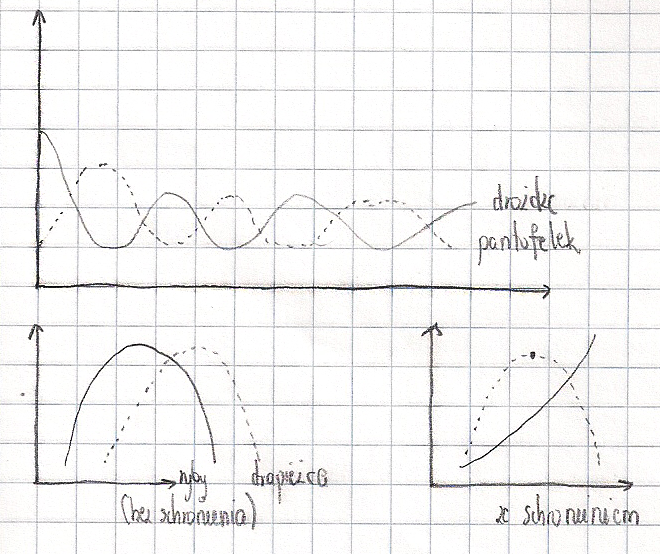 drożdże
pantofelek
ryby drapieżca
(bez schronienia)
ze schronieniem